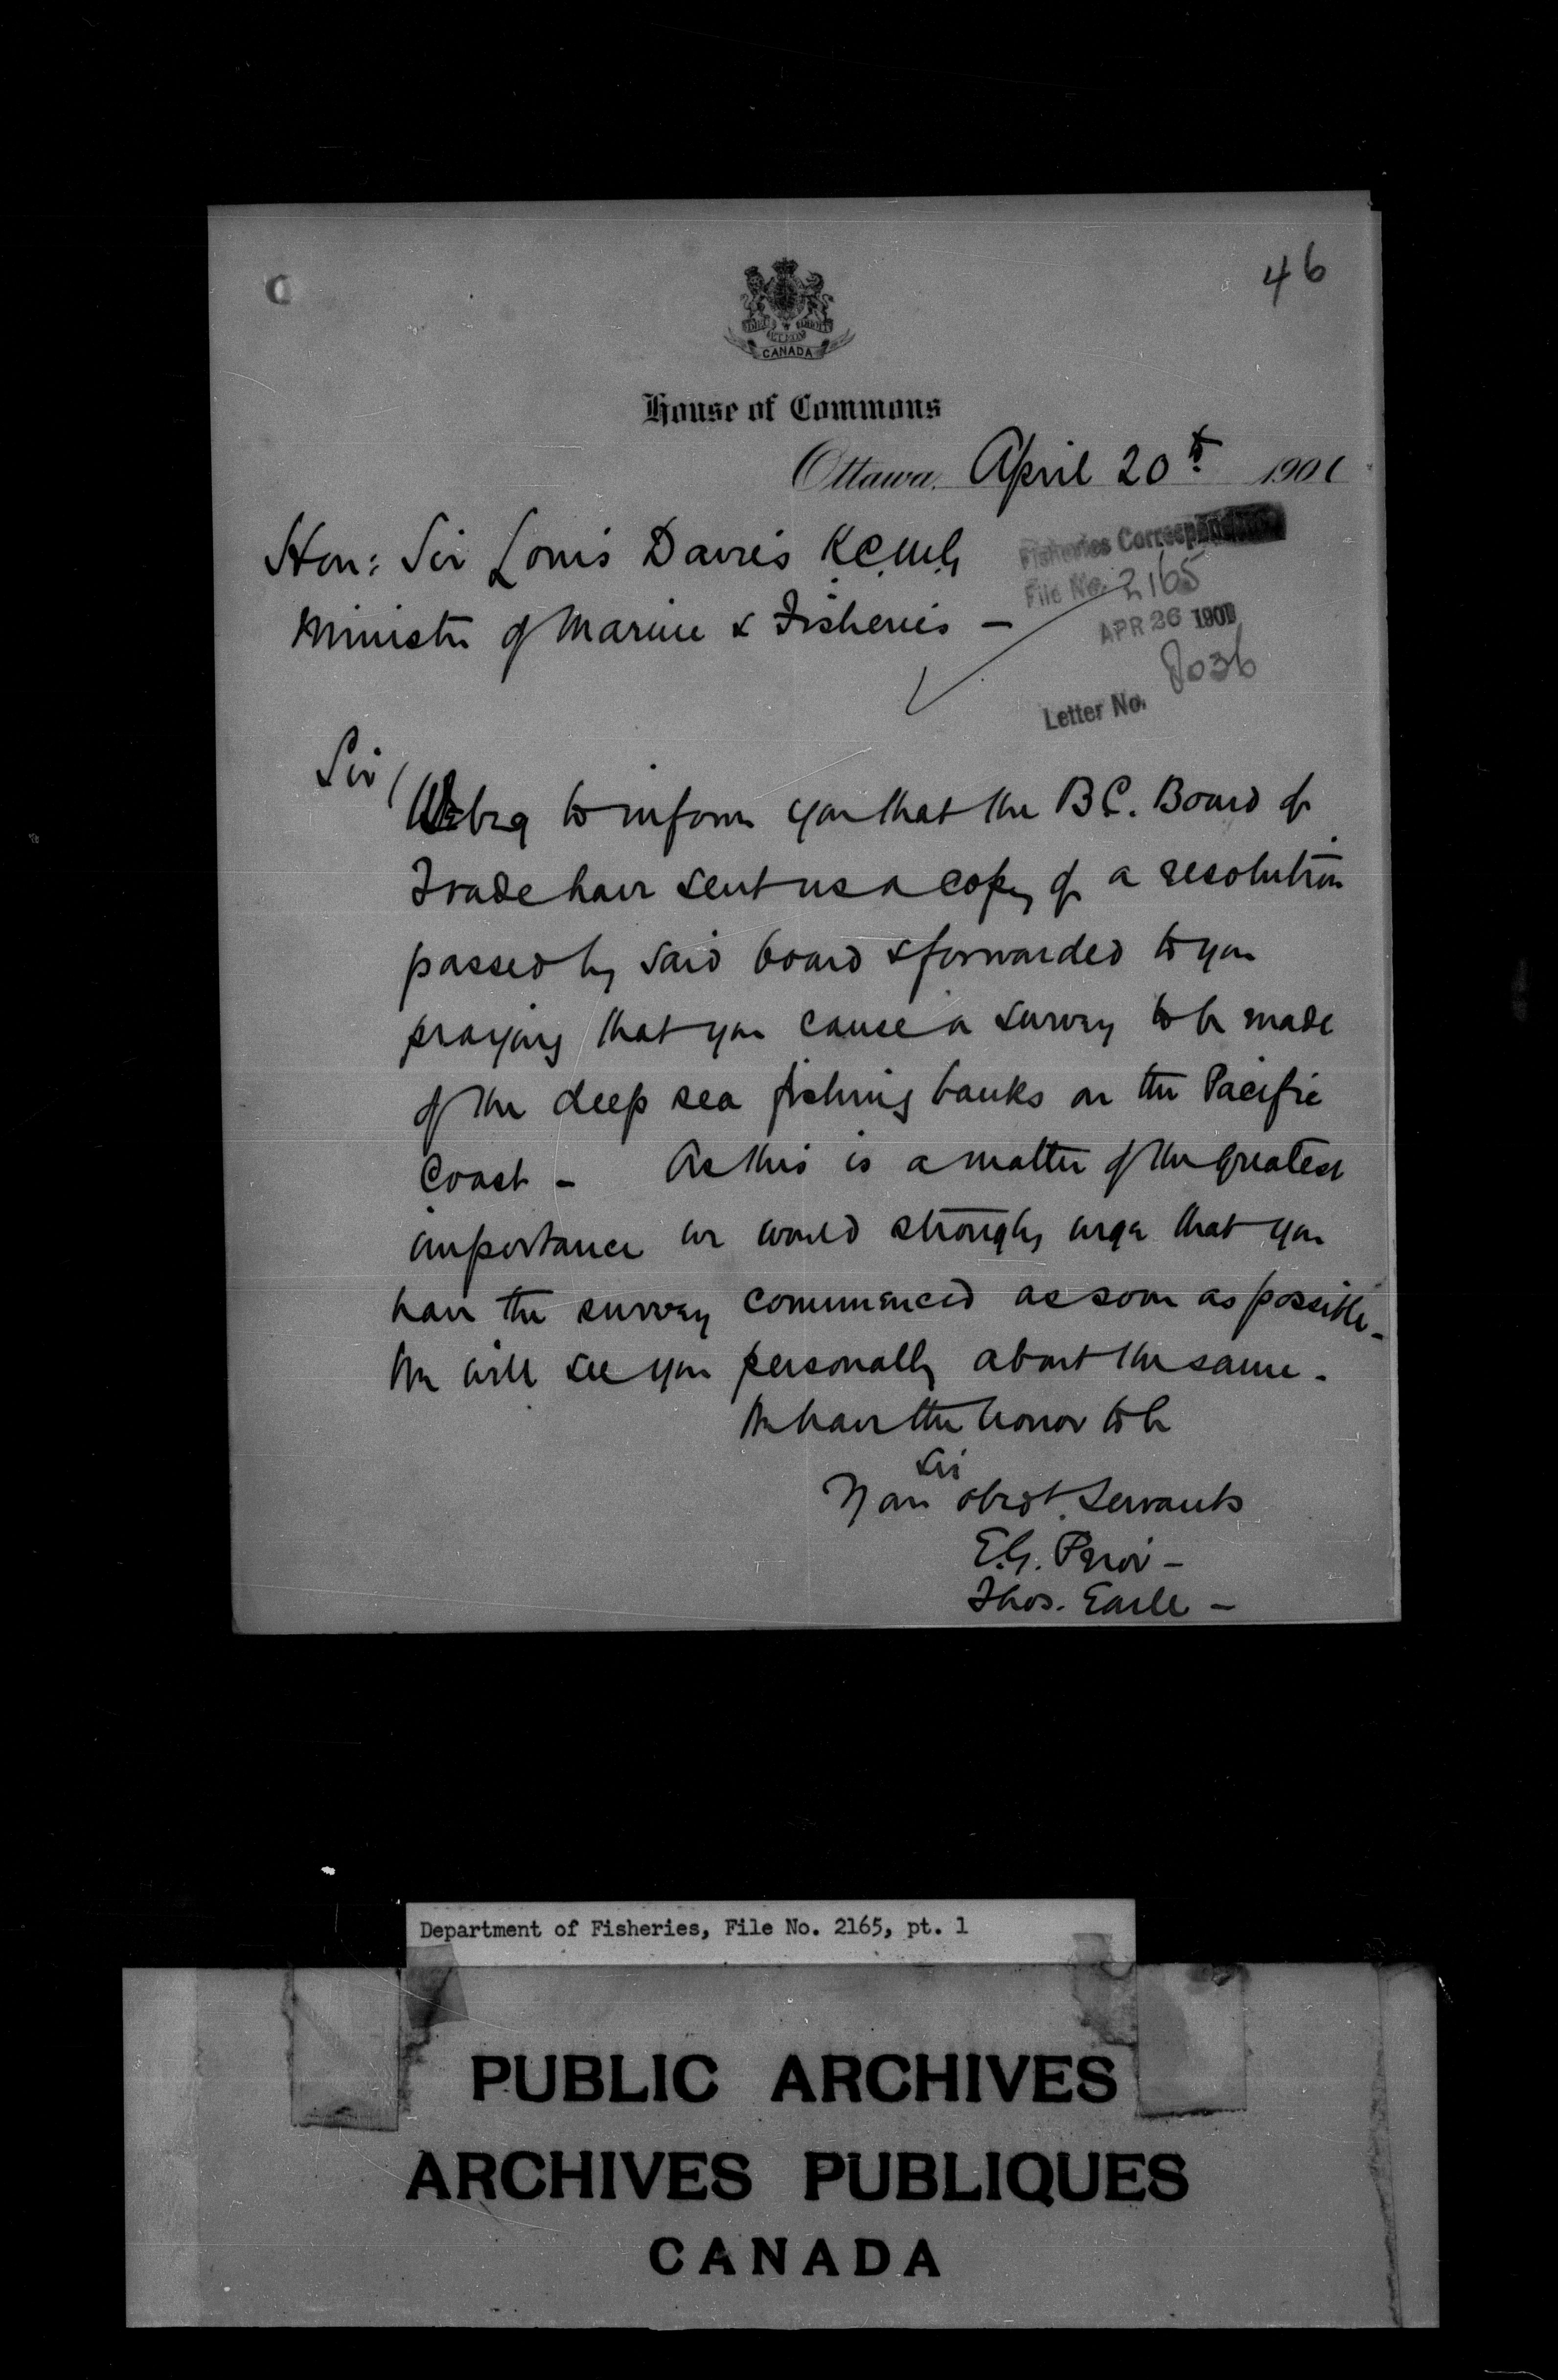 46
CANADA
House of Commons
Ottawa, April 20th 1901
Hon: Sir Louis Davies K.C.M.G
Minister of Marine & Fisheries —
Fisheries Correspondence
File No. 2165
APR 26 1901
8036
Letter No.
Sir/
We beg to inform you that the B.C. Board of
Trade have sent us a copy of a resolution
passed by said board & forwarded to you
praying that you cause a survey to be made
of the deep sea fishing banks on the Pacific
Coast - As this is a matter of the greatest
importance we would strongly urge that you
have the survey commenced as soon as possible -
We will see you personally about the same -
We have the honor to be
Sir
Your obedt. Servants
E.G. Prior -
Thos. Earle -
Department of Fisheries, File No. 2165, pt. 1
PUBLIC ARCHIVES
ARCHIVES PUBLIQUES
CANADA